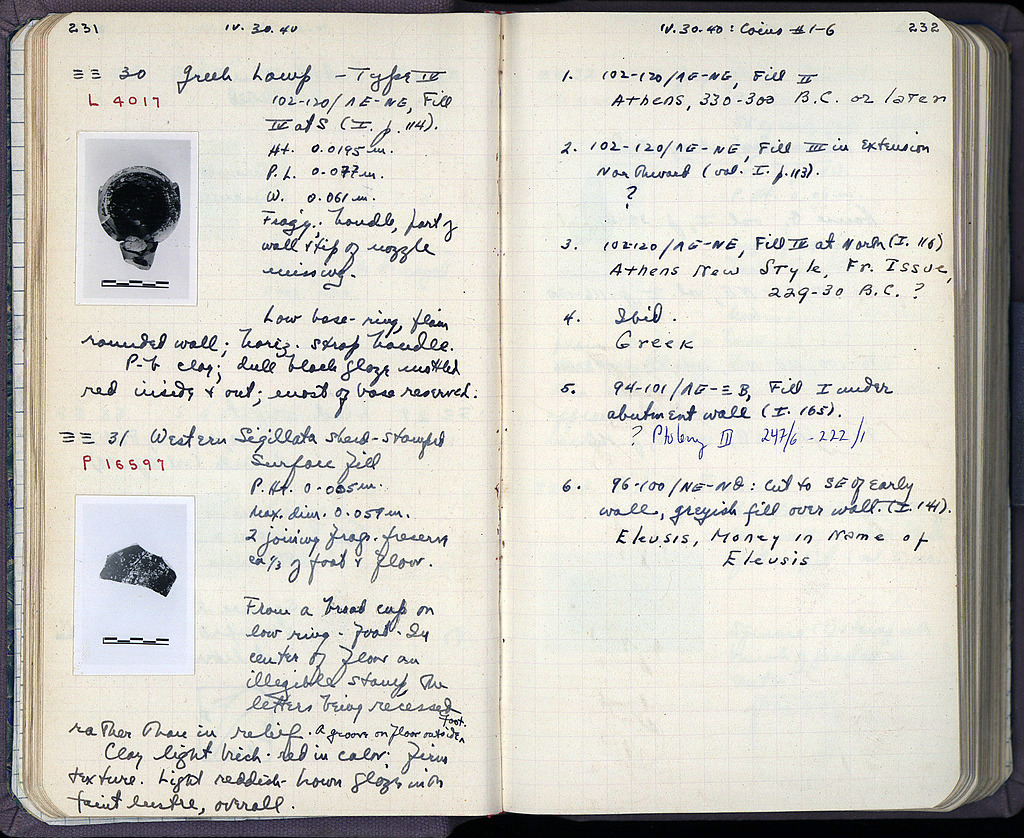 231
IV.30.40
ΞΞ 30 Greek Lamp - Type IV
L 4017
102-120/ΛΕ-ΝΕ, Fill
IV at S (I. p. 114).
Ht. 0.0195 m.
P.L. 0.077 m.
W. 0.061 m.
Frag'y.; handle, part of
wall & tip of nozzle
missing.
Low base-ring, plain
rounded wall; horiz. strap handle.
P-b clay; dull black glaze mottled
red inside & out; most of base reserved.
ΞΞ 31 Western Sigillata sherd - stamped
P 16597
Surface fill
P.Ht. 0.005 m.
Max. dim. 0.059 m.
2 joining frags. preserve
ca ⅓ of foot & floor.
From a broad cup on
low ring-foot. In
center of floor an
illegible stamp, the
letters being recessed
rather than in relief. A groove on floor outside foot.
Clay light brick-red in color. Firm
texture. Light reddish-brown glaze with
faint lustre, overall.
IV.30.40: Coins #1-6
232
1. 102-120/ΛΕ-ΝΕ, Fill II
Athens, 330-300 B.C. or later
2. 102-120/ΛΕ-ΝΕ, Fill III in extension
Northward (vol. I. p. 113).
?
3. 102-120/ΛΕ-ΝΕ, Fill IV at North (I. 116)
Athens New Style, Fr. Issue,
229-30 B.C. ?
4. Ibid.
Greek
5. 94-101/ΛΕ-ΞB, Fill I under
abutment wall (I. 165).
? Ptolemy III 247/6 - 222/1
6. 96-100/ΝΕ-ΝΘ: Cut to SE of early
wall, greyish fill over wall. (I. 141).
Eleusis, Money in Name of
Eleusis